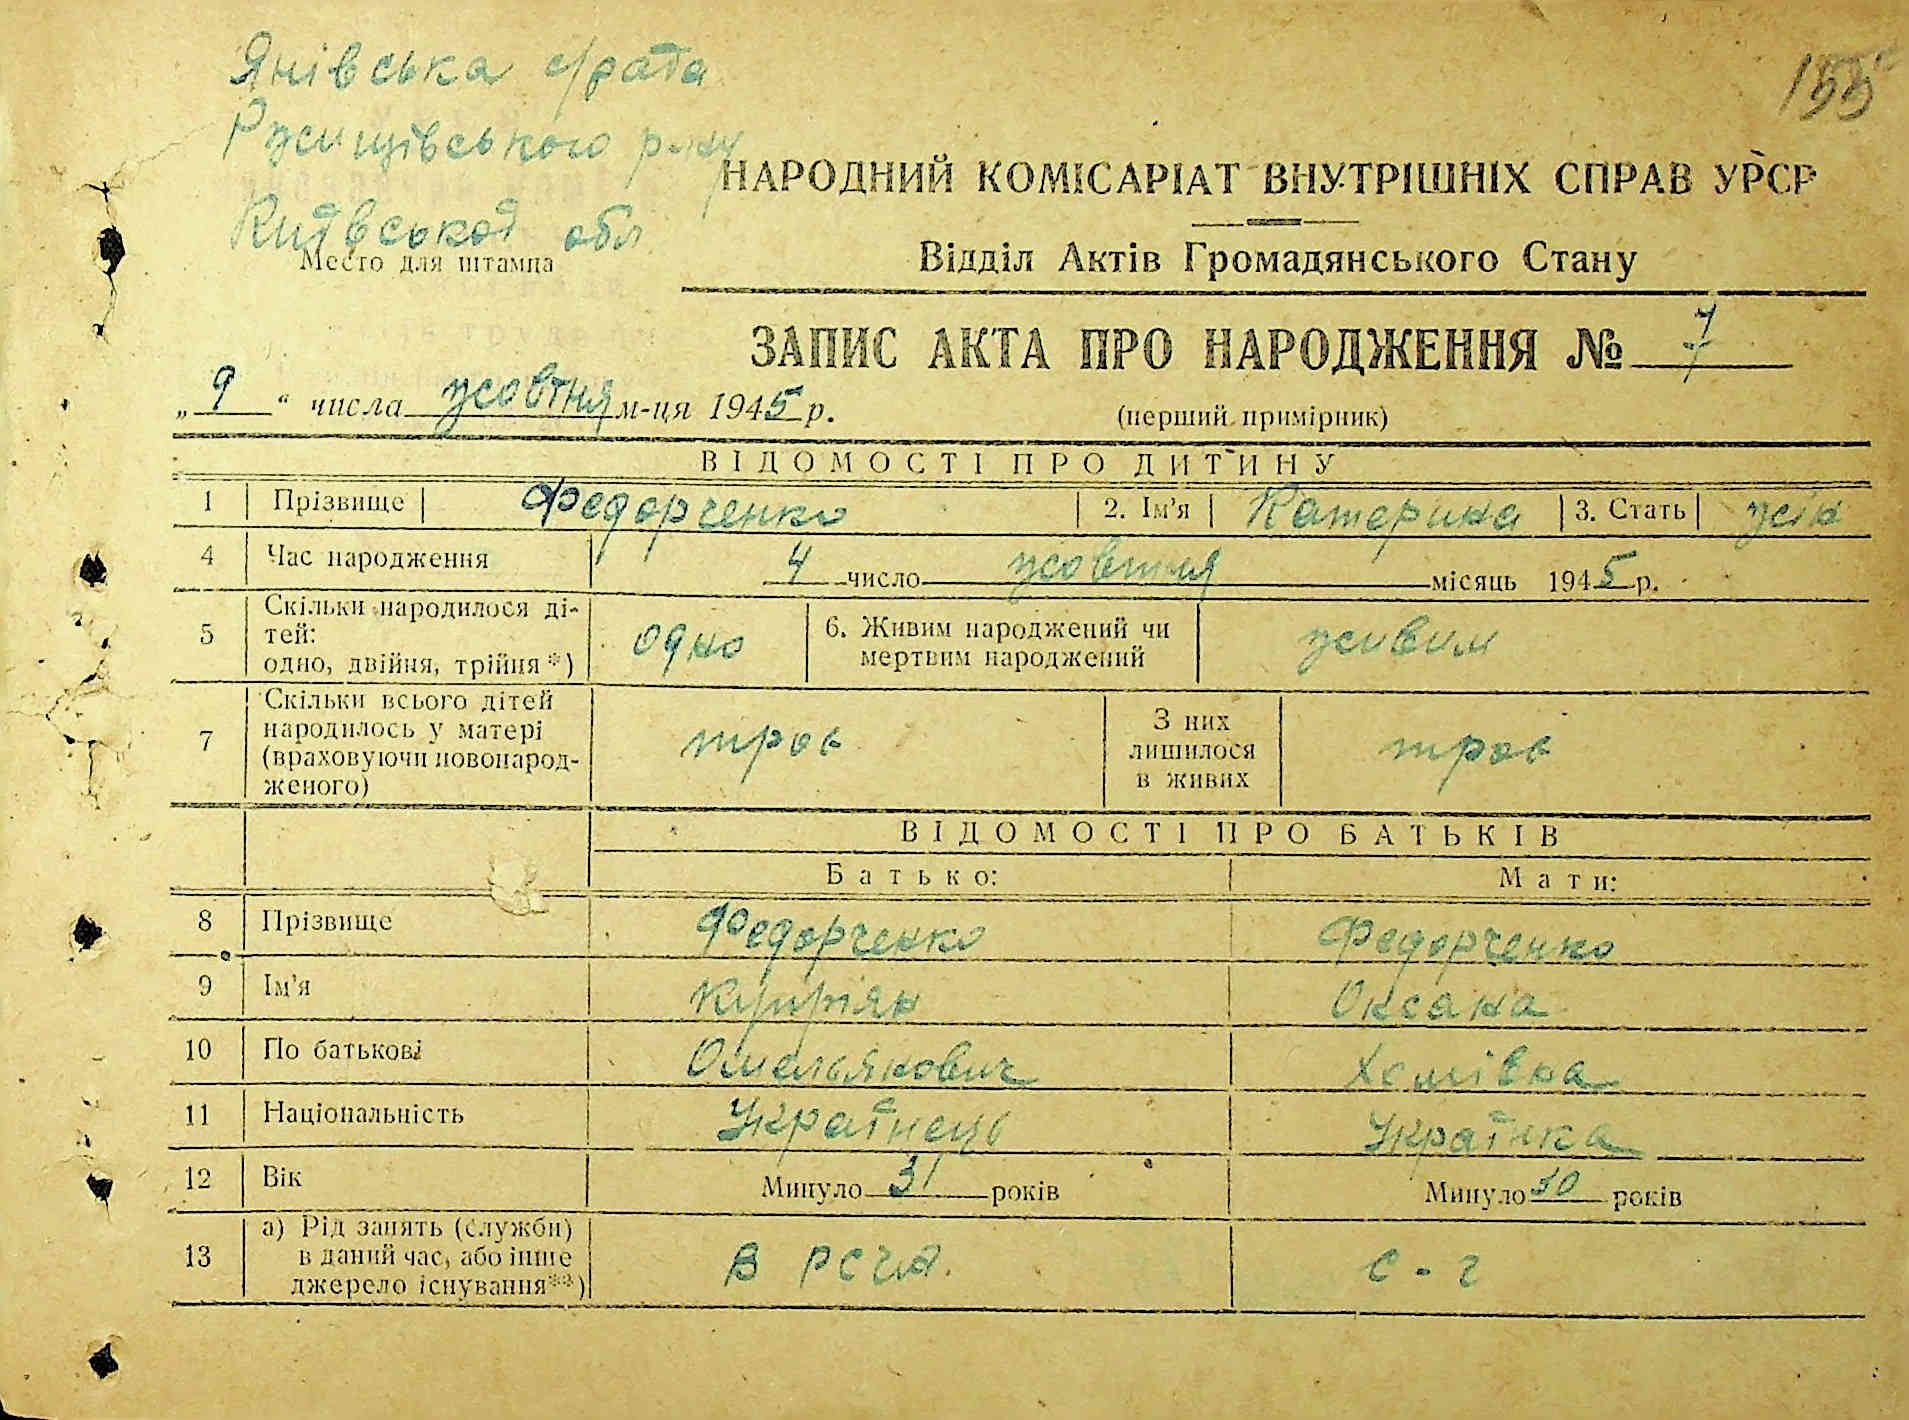 Янівська с/рада
155
Київської обл
Место для штампа
НАРОДНИЙ КОМІСАРІАТ ВНУТРІШНІХ СПРАВ УРСР
Відділ Актів Громадянського Стану
ЗАПИС АКТА ПРО НАРОДЖЕННЯ № 7
„ 9 “ числа жовтня м-ця 1945 р.
(перший примірник)
ВІДОМОСТІ ПРО ДИТИНУ
1 Прізвище Федорченко 2. Ім’я Катерина 3. Стать жін
4 Час народження 4 число жовтня місяць 1945 р.
5 Скільки народилося ді-
тей:
одно, двійня, трійня*) одно 6. Живим народжений чи
мертвим народжений живим
7 Скільки всього дітей
народилось у матері
(враховуючи новонарод-
женого) троє З них
лишилося
в живих троє
ВІДОМОСТІ ПРО БАТЬКІВ
Батько: Мати:
8 Прізвище Федорченко Федорченко
9 Ім’я Купріян Оксана
10 По батькові Омельянович Хомівна
11 Національність Українець Українка
12 Вік Минуло 31 років Минуло 30 років
13 а) Рід занять (служби)
в даний час, або інше
джерело існування**) в РСЧА. с-г